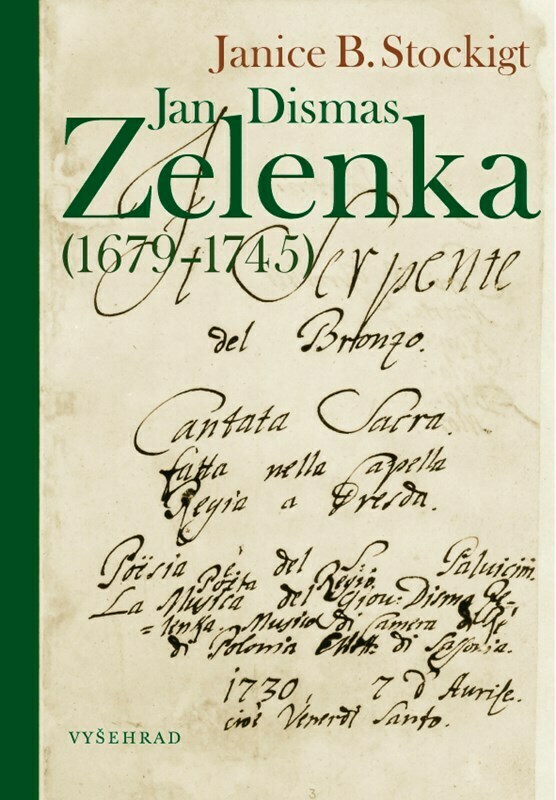 Janice B. Stockigt
Jan Dismas
Zelenka
(1679–1745)
Il Serpente
del Bronzo.
Cantata Sacra.
fatta nella Capella
Regia a Dresda.
Poësia è del S. Palavicini.
Poëta Regio.
La Musica del Giov: Disma Ze-
=lenka Musico di Camera
di Polonia di Sassonia.
1730, 7 d'Aurile.
cioè Venerdi Santo.
VYŠEHRAD
3